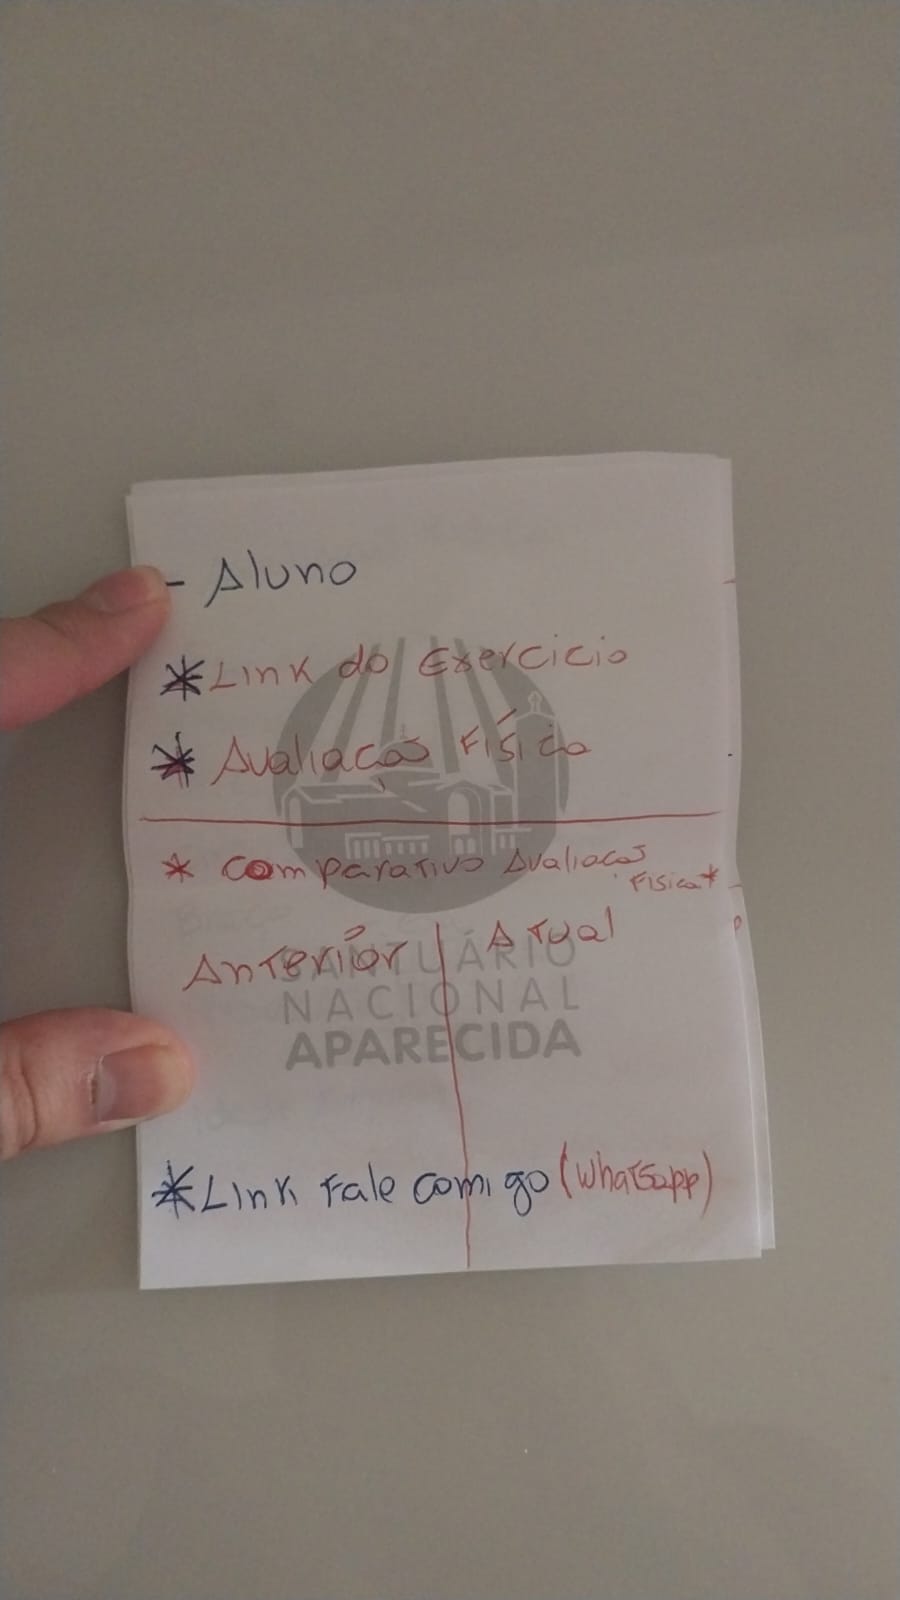 - Aluno
* Link do Exercicio
* Avaliação Física
* Comparativo Avaliação
Física *
Anterior | Atual
SANTUÁRIO
NACIONAL
APARECIDA
* Link Fale comigo (Whatsapp)